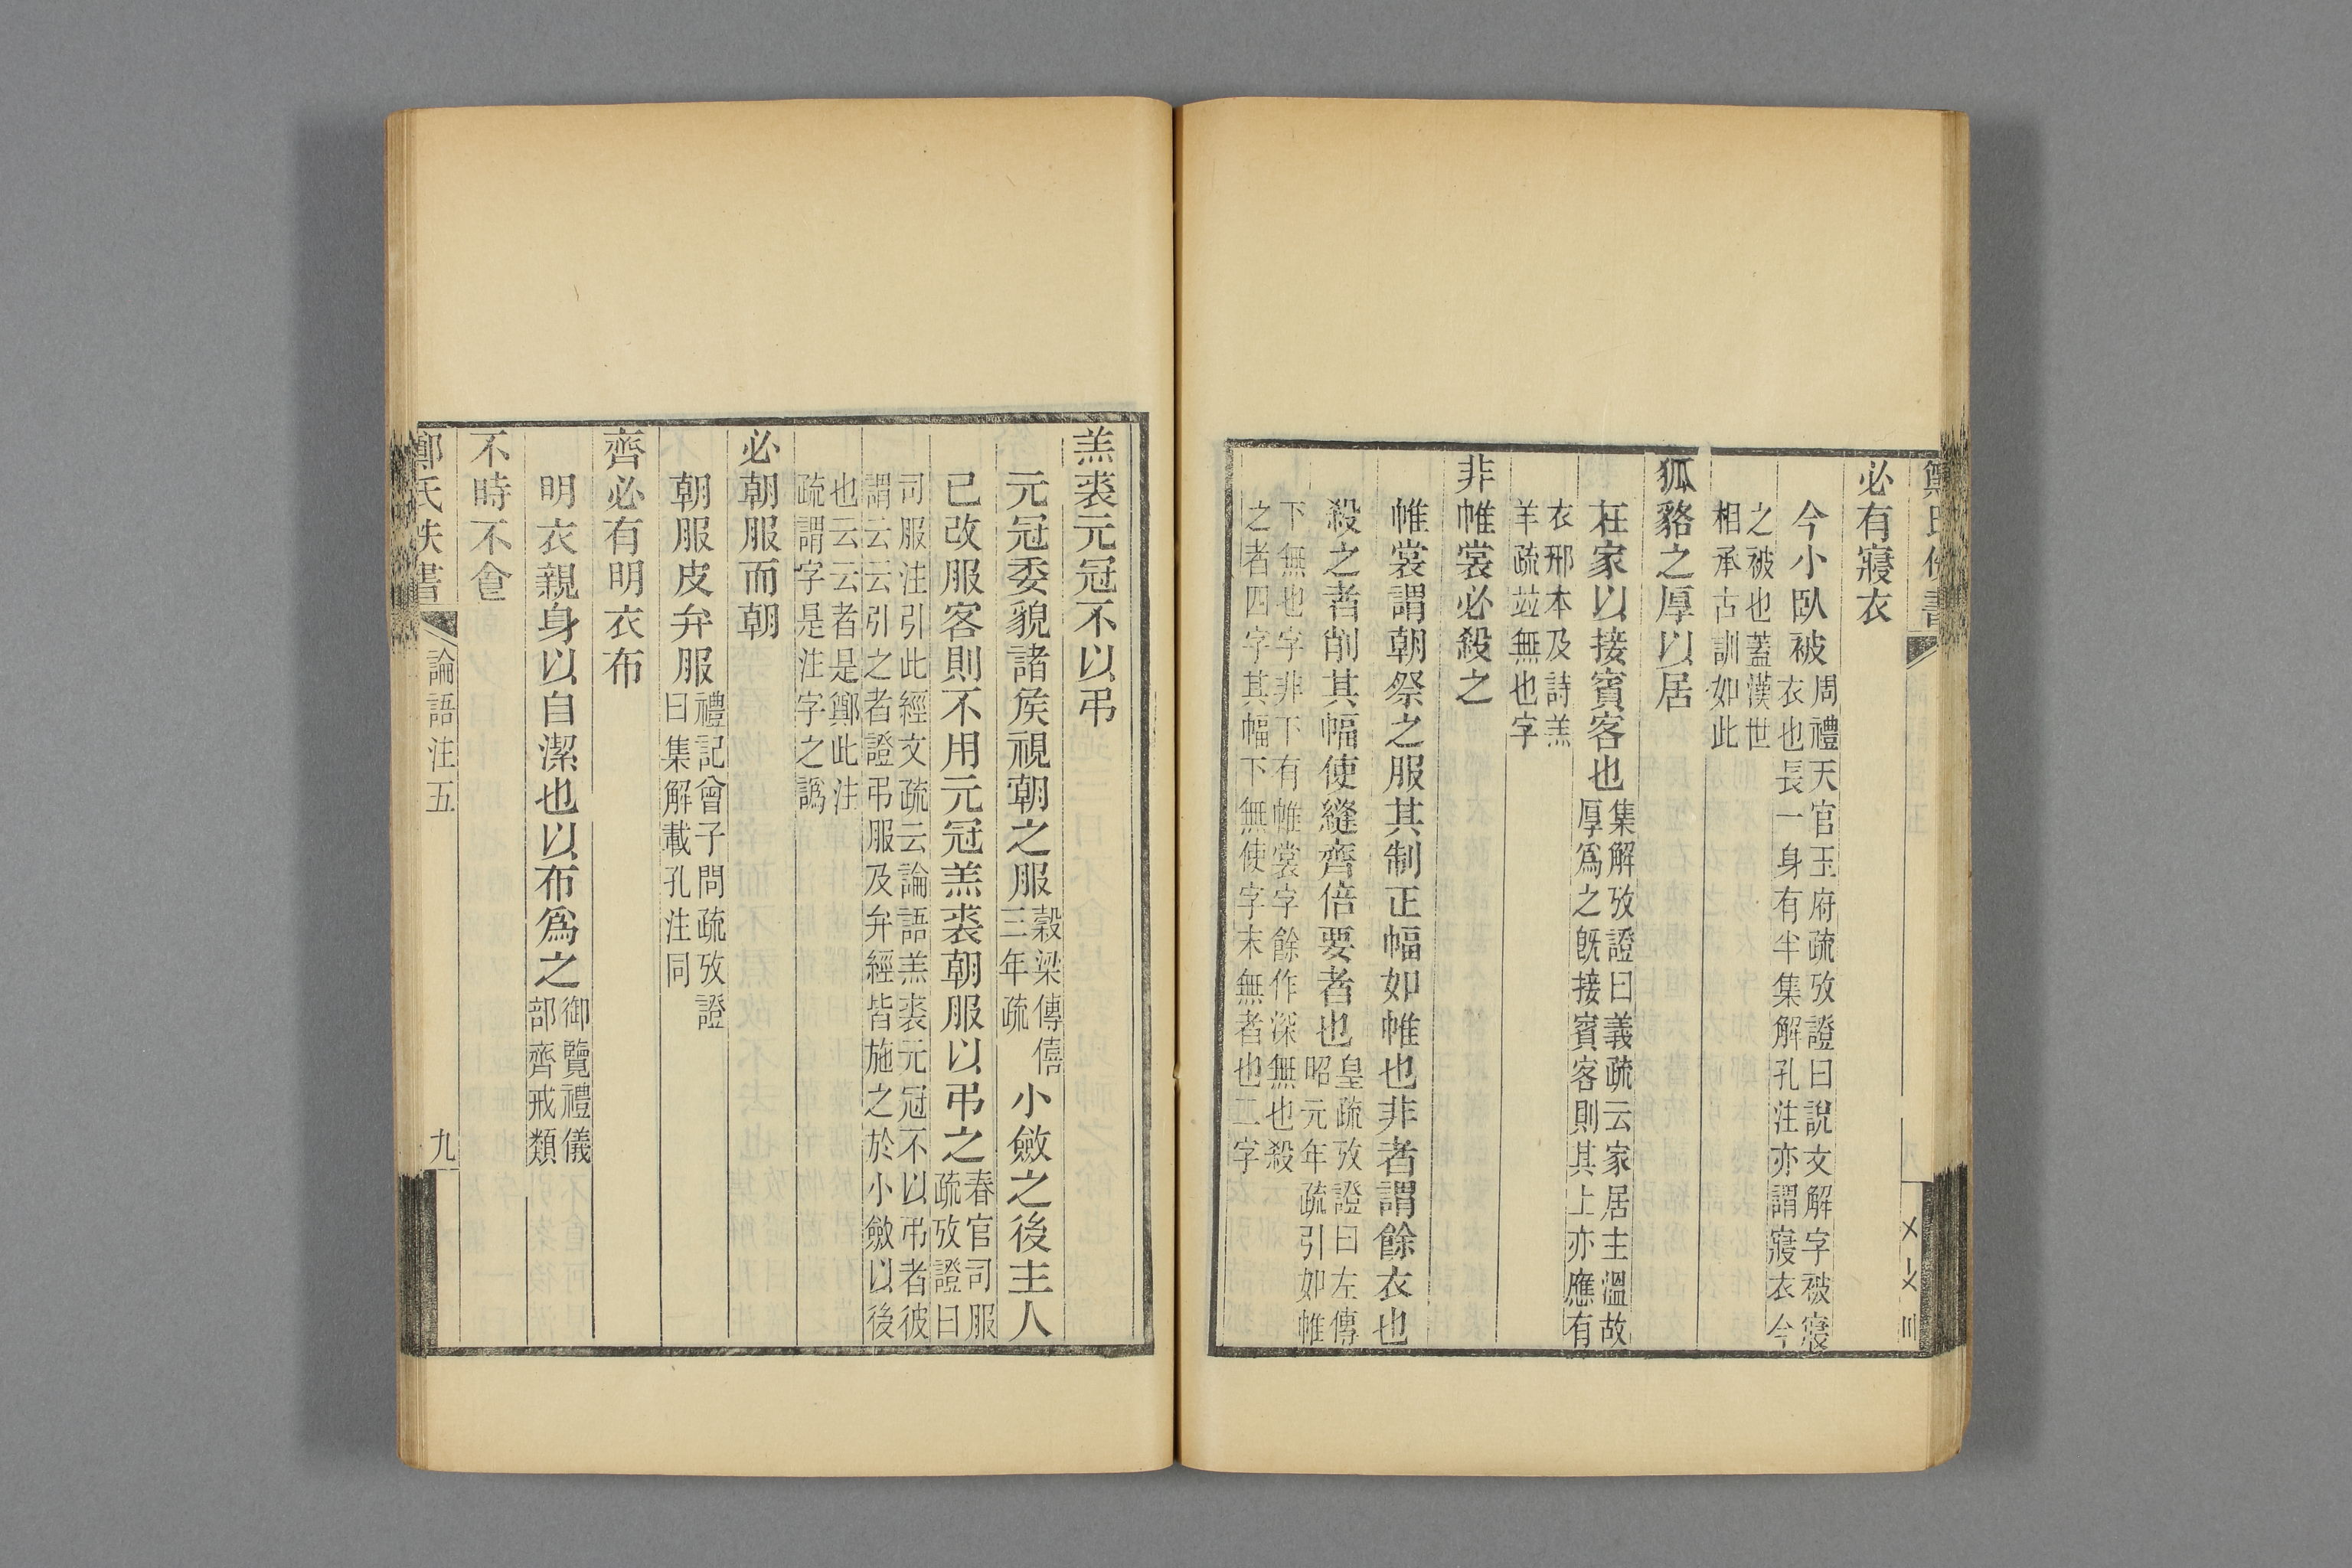 必有寢衣
今小臥被周禮天官玉府疏攷證曰說文解字被寢
衣也長一身有半集解孔注亦謂寢衣今
之被也蓋漢世
相承古訓如此
狐貉之厚以居
在家以接賓客也集解攷證曰義疏云家居主溫故
厚爲之旣接賓客則其上亦應有
衣邢本及詩羔
羊疏竝無也字
非帷裳必殺之
帷裳謂朝祭之服其制正幅如帷也非者謂餘衣也
殺之者削其幅使縫齊倍要者也皇疏攷證曰左傳
昭元年疏引如帷
下無也字非下有帷裳字餘作深無也殺
之者四字其幅下無使字末無者也二字
羔裘元冠不以弔
元冠委貌諸矦視朝之服穀梁傳僖
三年疏小斂之後主人
已改服客則不用元冠羔裘朝服以弔之春官司服
疏攷證曰
司服注引此經文疏云論語羔裘元冠不以弔者彼
謂云云引之者證弔服及弁絰皆施之於小斂以後
也云云者是鄭此注
疏謂字是注字之譌
必朝服而朝
朝服皮弁服禮記曾子問疏攷證
曰集解載孔注同
齊必有明衣布
明衣親身以自潔也以布爲之御覽禮儀
部齊戒類
不時不食
鄭氏佚書
論語注五
九